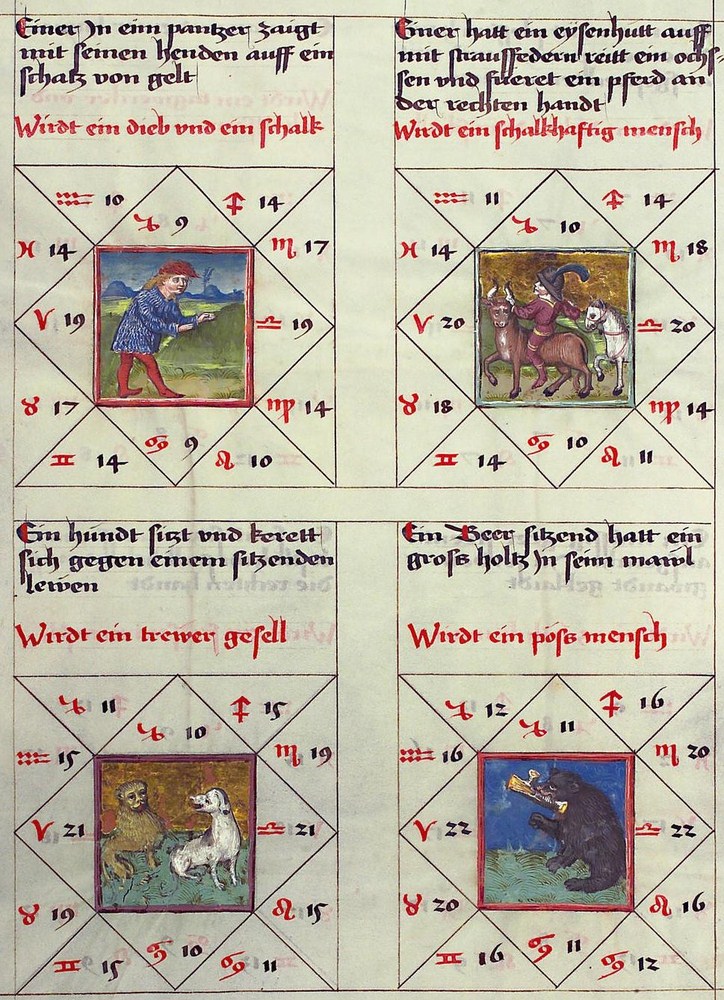 Einer Jn eim pantzer zaigt
mit seinen henden auff ein
schatz von gelt
Wirdt ein dieb vnd ein schalk
♒ 10
♑ 9
♐ 14
♓ 14
♏ 17
♈ 19
♎ 19
♉ 17
♍ 14
♊ 14
♋ 9
♌ 10
Einer hatt ein eysenhutt auff
mit straussfedern reitt ein ochs-
sen vnd fueret ein pferd an
der rechten handt
Wirdt ein schalkhafftig mensch
♒ 11
♑ 10
♐ 14
♓ 14
♏ 18
♈ 20
♎ 20
♉ 18
♍ 14
♊ 14
♋ 10
♌ 11
Ein hundt sizt vnd kerett
sich gegen einem sitzenden
lewen
Wirdt ein trewer gesell
♑ 11
♑ 10
♐ 15
♒ 15
♏ 19
♈ 21
♎ 21
♉ 19
♌ 15
♊ 15
♋ 10
♋ 11
Ein Beer sitzend hatt ein
gross holtz Jn seim mawl
Wirdt ein poss mensch
♑ 12
♑ 11
♐ 16
♒ 16
♏ 20
♈ 22
♎ 22
♉ 20
♌ 16
♊ 16
♋ 11
♋ 12